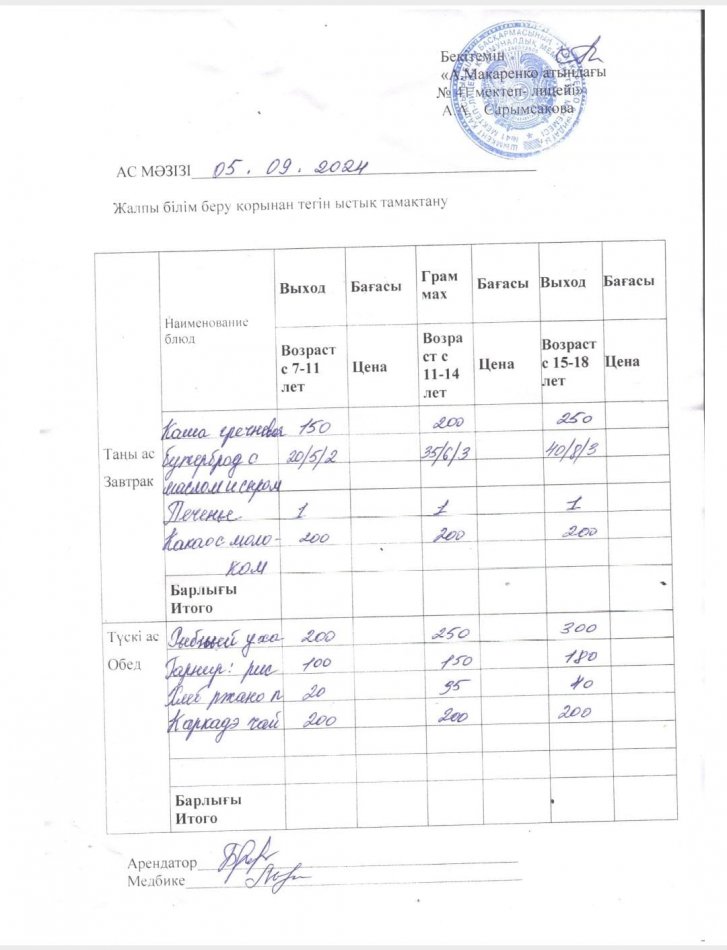 Бекітемін
«А.Макаренко атындағы
№ 41 мектеп- лицейі»
А Сарымсақова
АС МӘЗІЗІ 05.09.2024
Жалпы білім беру қорынан тегін ыстық тамақтану
Наименование блюд Выход Бағасы Грам мах Бағасы Выход Бағасы
Возраст с 7-11 лет Цена Возра ст с 11-14 лет Цена Возраст с 15-18 лет Цена
Таңы ас
Завтрак
Каша гречневая 150 200 250
бутерброд с 20/5/2 35/6/3 40/8/3
маслом и сыром
Печенье 1 1 1
Какао с моло- 200 200 200
ком
Барлығы
Итого
Түскі ас
Обед
Рыбный уха 200 250 300
Гарнир: рис 100 150 180
Хлеб ржано п 20 35 40
Каркадэ чай 200 200 200
Барлығы
Итого
Арендатор
Медбике